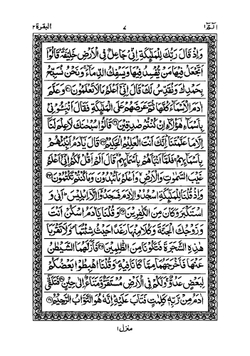 البقرة ٢
٧
الٓمّٓ ١
وَاِذْ قَالَ رَبُّكَ لِلْمَلٰٓئِكَةِ اِنِّىْ جَاعِلٌ فِى الْاَرْضِ خَلِيْفَةً ؕ قَالُوْٓا
اَتَجْعَلُ فِيْهَا مَنْ يُّفْسِدُ فِيْهَا وَيَسْفِكُ الدِّمَآءَ ۚ وَنَحْنُ نُسَبِّحُ
بِحَمْدِكَ وَنُقَدِّسُ لَكَ ؕ قَالَ اِنِّىْٓ اَعْلَمُ مَا لَا تَعْلَمُوْنَ ﴿۳۰﴾ وَعَلَّمَ
اٰدَمَ الْاَسْمَآءَ كُلَّهَا ثُمَّ عَرَضَهُمْ عَلَى الْمَلٰٓئِكَةِ ۙ فَقَالَ اَنْۢبِـُٔوْنِىْ
بِاَسْمَآءِ هٰٓؤُلَآءِ اِنْ كُنْتُمْ صٰدِقِيْنَ ﴿۳۱﴾ قَالُوْا سُبْحٰنَكَ لَا عِلْمَ لَنَآ
اِلَّا مَا عَلَّمْتَنَا ؕ اِنَّكَ اَنْتَ الْعَلِيْمُ الْحَكِيْمُ ﴿۳۲﴾ قَالَ يٰٓاٰدَمُ اَنْۢبِئْهُمْ
بِاَسْمَآئِهِمْ ۚ فَلَمَّآ اَنْۢبَاَهُمْ بِاَسْمَآئِهِمْ ۙ قَالَ اَلَمْ اَقُلْ لَّكُمْ اِنِّىْٓ اَعْلَمُ
غَيْبَ السَّمٰوٰتِ وَالْاَرْضِ ۙ وَاَعْلَمُ مَا تُبْدُوْنَ وَمَا كُنْتُمْ تَكْتُمُوْنَ ﴿۳۳﴾
وَاِذْ قُلْنَا لِلْمَلٰٓئِكَةِ اسْجُدُوْا لِاٰدَمَ فَسَجَدُوْٓا اِلَّآ اِبْلِيْسَ ؕ اَبٰى وَ
اسْتَكْبَرَ وَكَانَ مِنَ الْكٰفِرِيْنَ ﴿۳۴﴾ وَقُلْنَا يٰٓاٰدَمُ اسْكُنْ اَنْتَ
وَزَوْجُكَ الْجَنَّةَ وَكُلَا مِنْهَا رَغَدًا حَيْثُ شِئْتُمَا وَلَا تَقْرَبَا
هٰذِهِ الشَّجَرَةَ فَتَكُوْنَا مِنَ الظّٰلِمِيْنَ ﴿۳۵﴾ فَاَزَلَّهُمَا الشَّيْطٰنُ
عَنْهَا فَاَخْرَجَهُمَا مِمَّا كَانَا فِيْهِ ۪ وَقُلْنَا اهْبِطُوْا بَعْضُكُمْ
لِبَعْضٍ عَدُوٌّ ۚ وَلَكُمْ فِى الْاَرْضِ مُسْتَقَرٌّ وَّمَتَاعٌ اِلٰى حِيْنٍ ﴿۳۶﴾ فَتَلَقّٰٓى
اٰدَمُ مِنْ رَّبِّهٖ كَلِمٰتٍ فَتَابَ عَلَيْهِ ؕ اِنَّهٗ هُوَ التَّوَّابُ الرَّحِيْمُ ﴿۳۷﴾
منزل ١